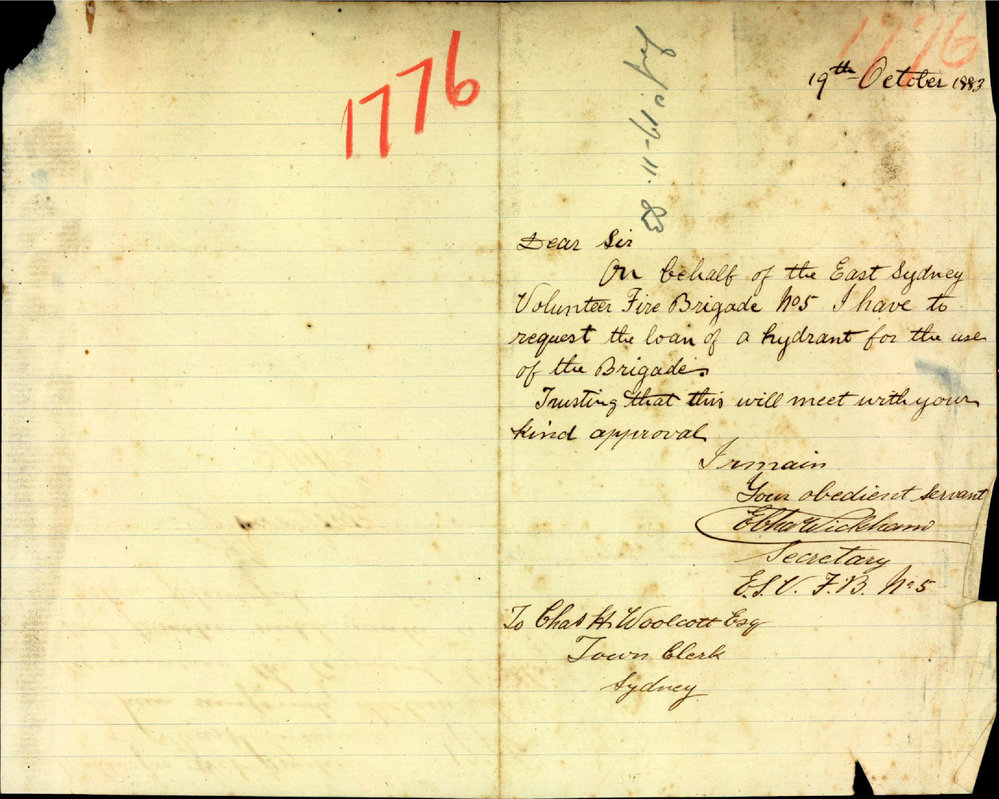 1776
1776
19th October 1883
19-11-83
Dear Sir
On behalf of the East Sydney
Volunteer Fire Brigade No5 I have to
request the loan of a hydrant for the use
of the Brigade.
Trusting that this will meet with your
kind approval
I rmain
Your obedient Servant
Wickham
Secretary
E.S.V. F.B. No 5
To Chas H. Woolcott Esq
Town Clerk
Sydney